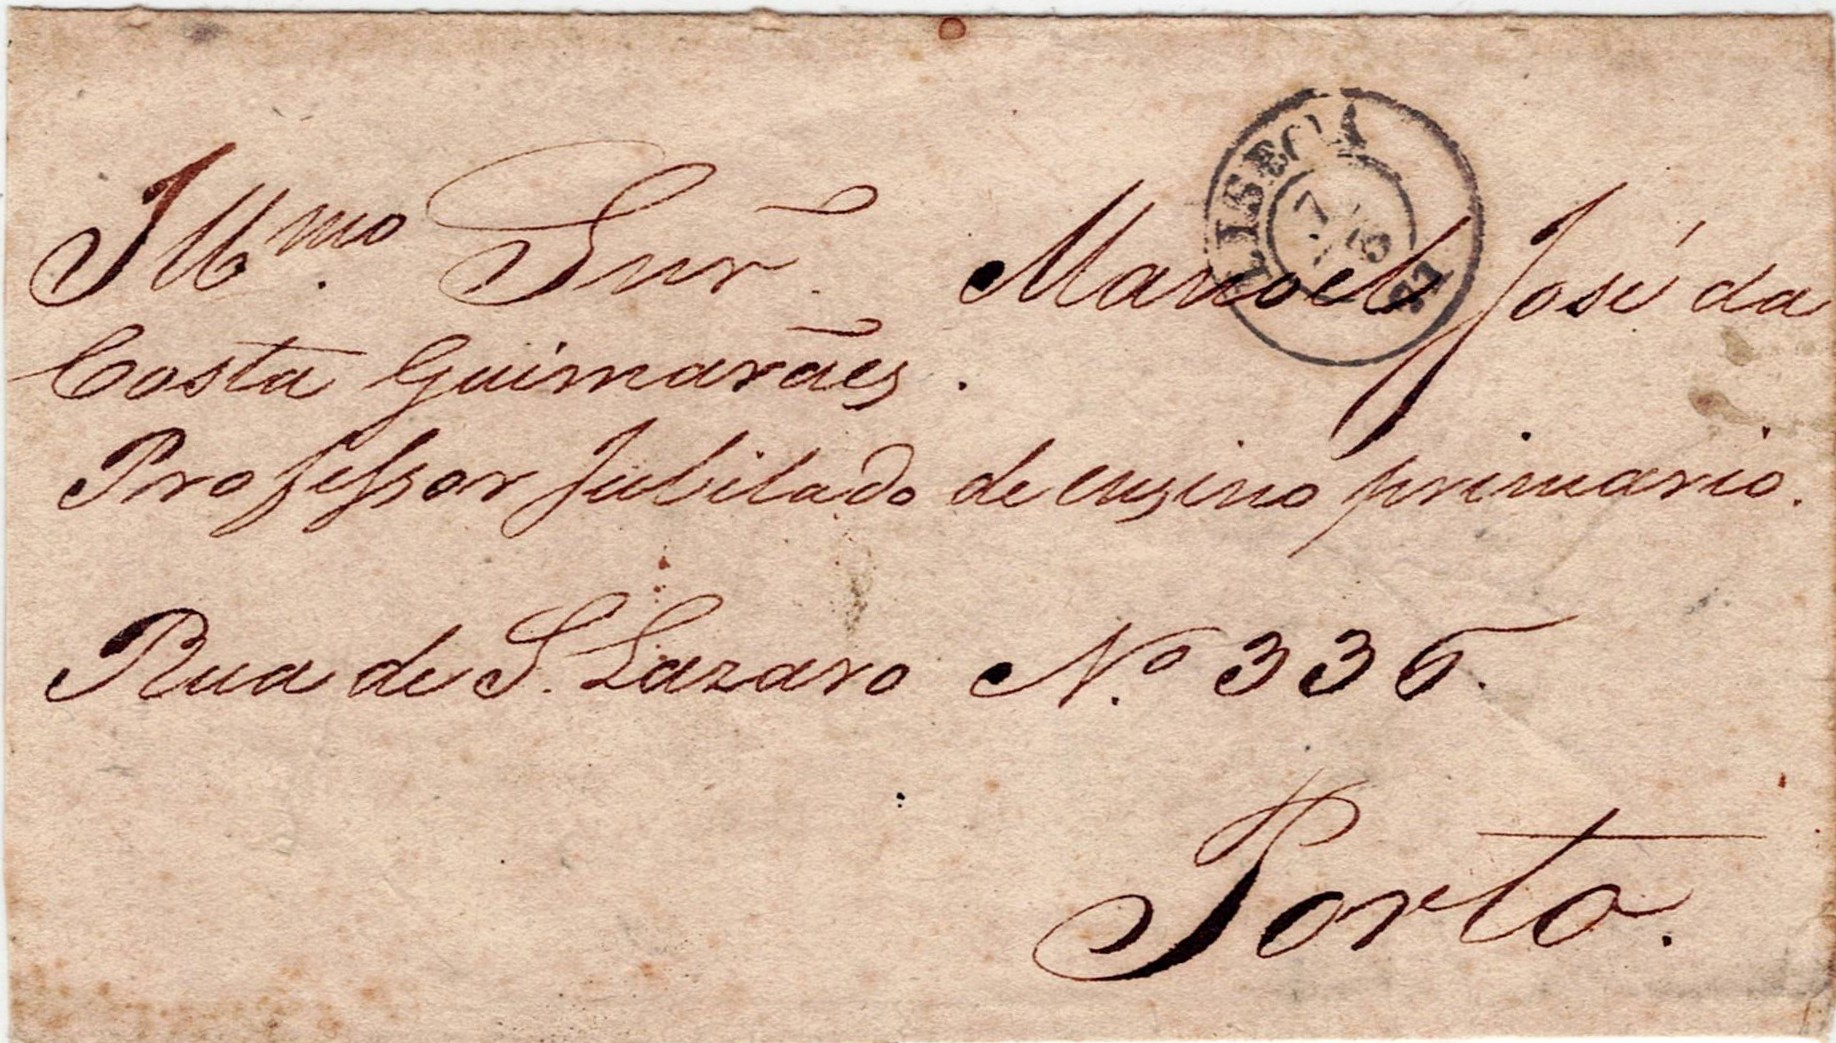 LISBOA
7
3
77
Illmo. Snr. Manoel José da
Costa Guimarães.
Professor Jubilado de ensino primario.
Rua de S. Lazaro No. 336.
Porto.